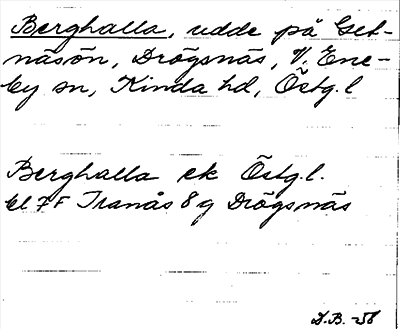 Berghalla, udde på Get-
näsön, Drögsnäs, V. Ene-
by sn, Kinda hd, Östg.l
Berghalla ek Östg.l.
bl 7F Tranås 8g Drögsnäs
D.B. -56